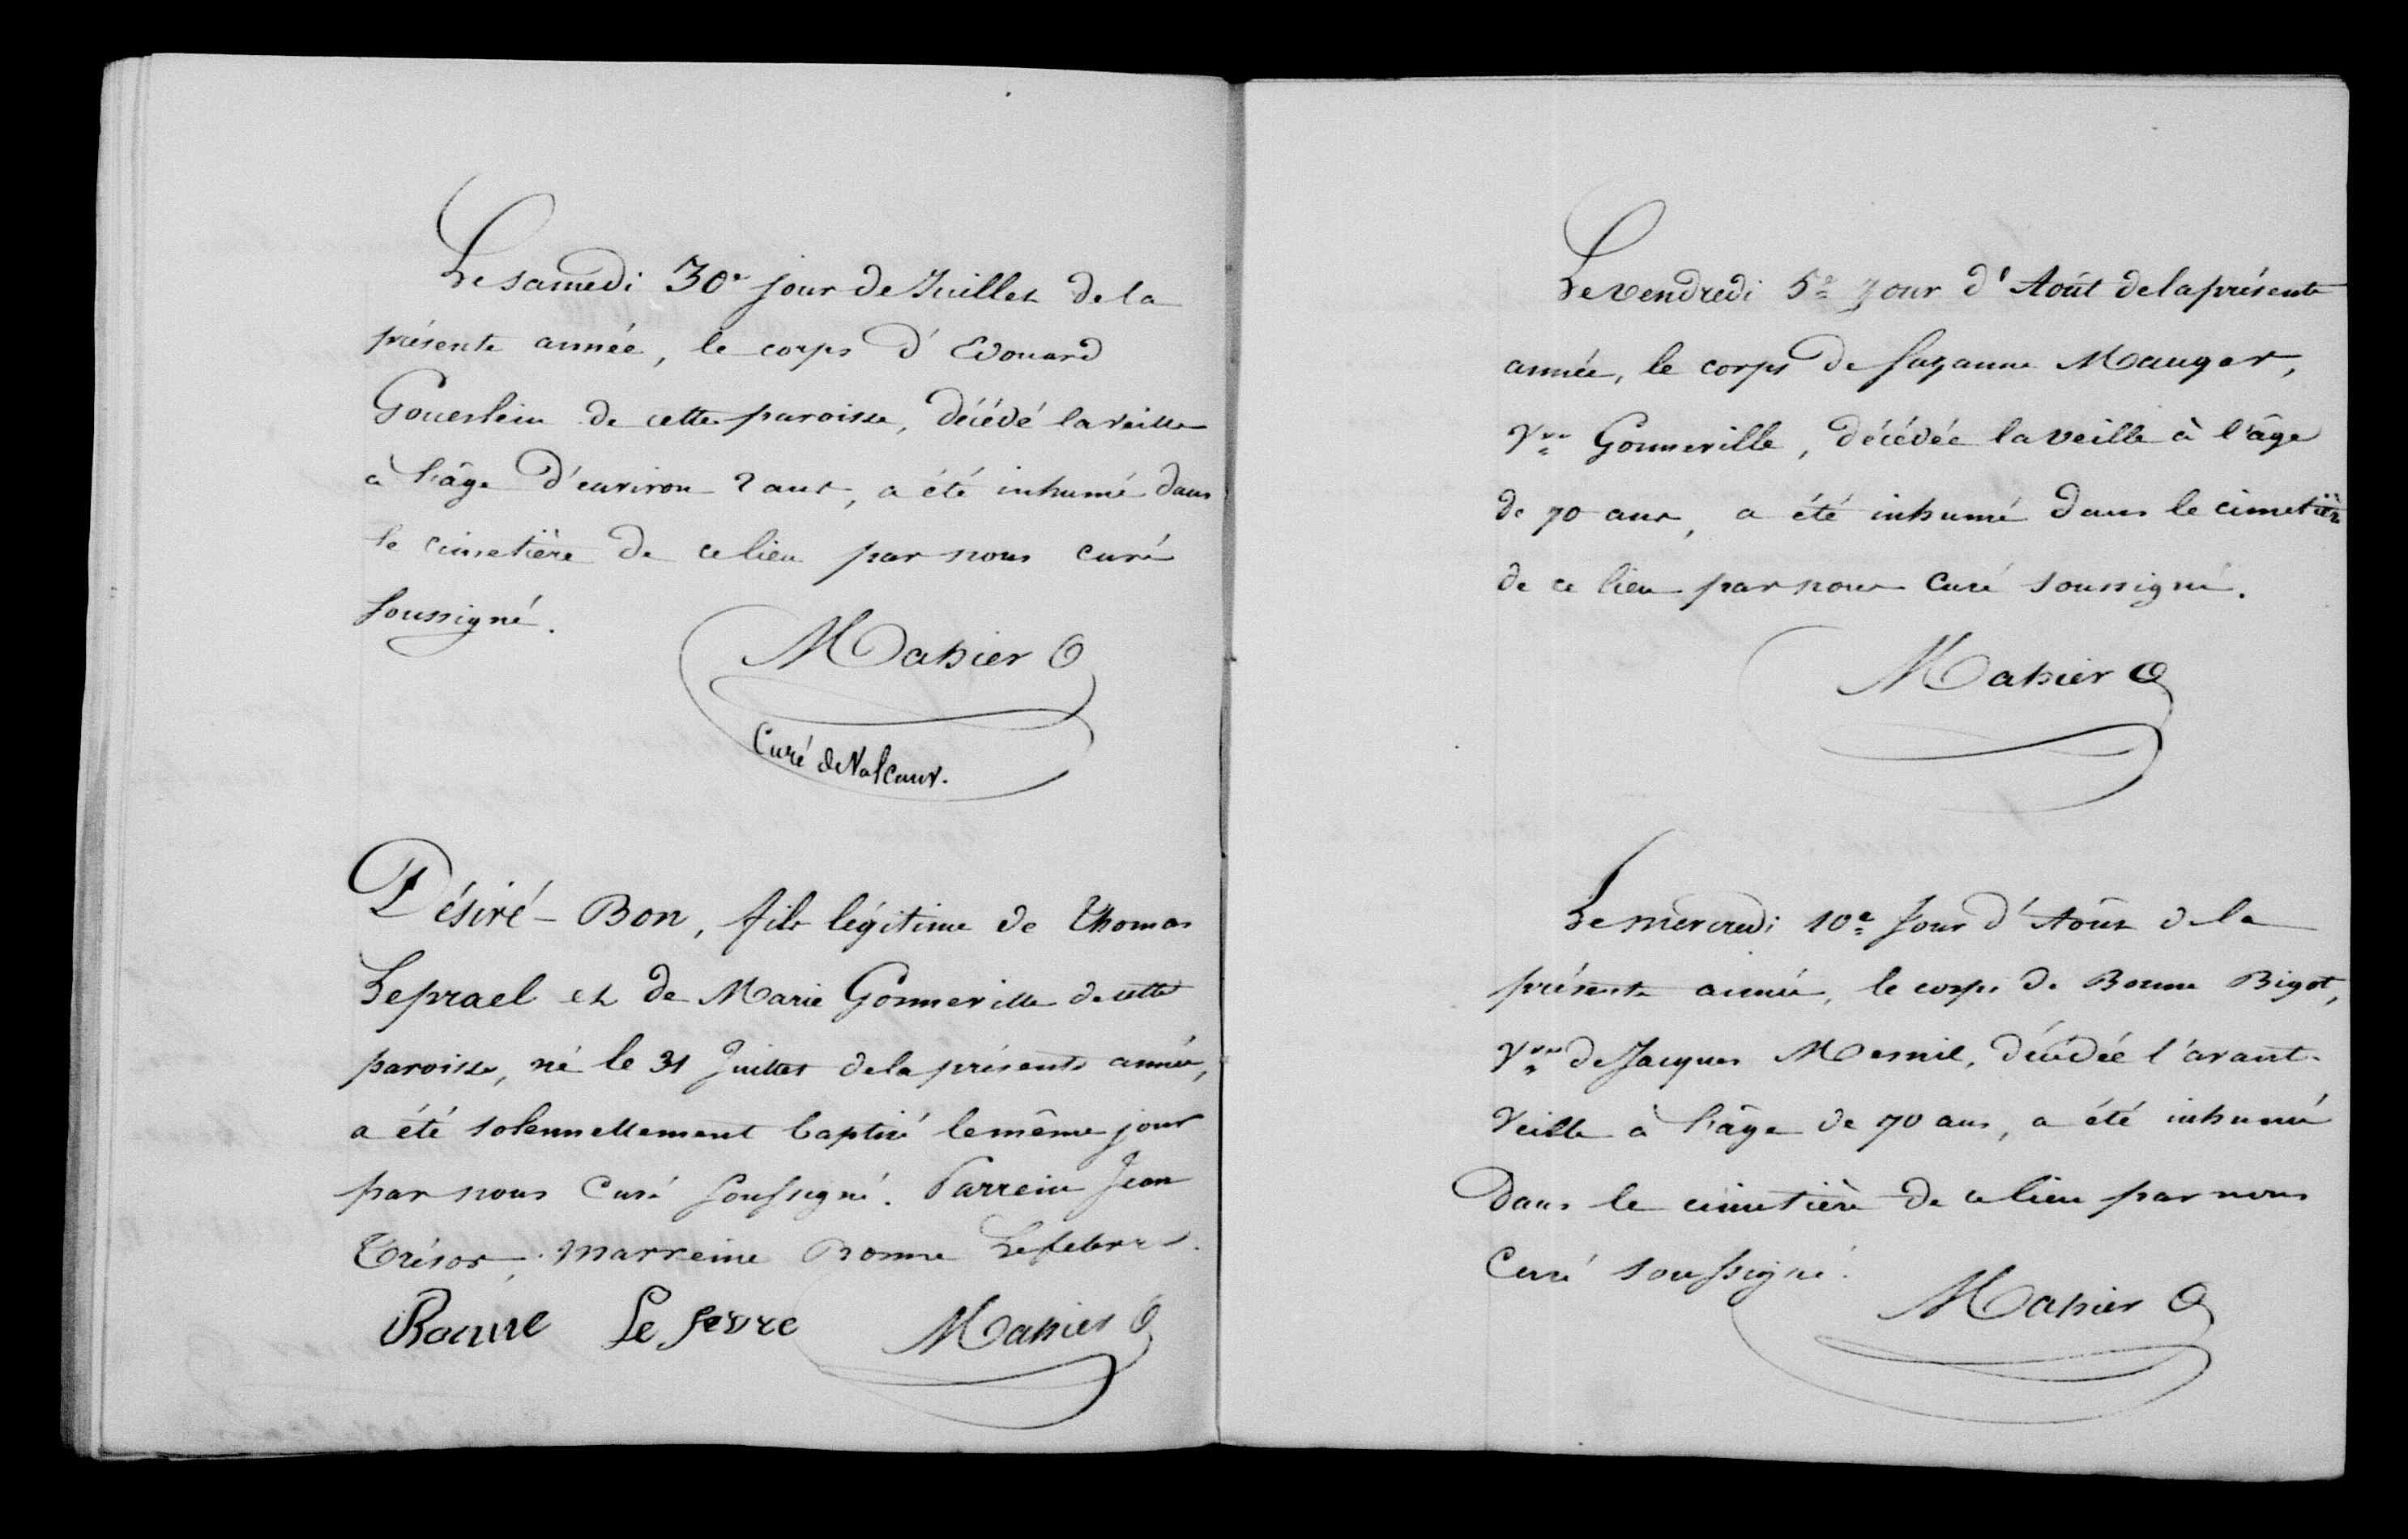 Le samedi 30e jour de Juillet de la
présente année, le corps d'Edouard
Goueslein de cette paroisse, décédé la veille
à l'âge d'environ 2 ans, a été inhumé dans
le cimetière de ce lieu par nous curé
soussigné.
Mahier
Curé de Valcanv.
Désiré-Bon, fils légitime de Thomas
Leprael et de Marie Gonneville de cette
paroisse, né le 31 Juillet de la présente année,
a été solennellement baptisé le même jour
par nous Curé soussigné. Parrein Jean
Trésor, marreine Bonne Lefebvre.
Bonne Le fevre Mahier
Le vendredi 5e Jour d'Août de la présente
année, le corps de Suzanne Mauger,
Vve Gonneville, décédée la veille à l'âge
de 70 ans, a été inhumé dans le cimetière
de ce lieu par nous Curé soussigné.
Mahier
Le mercredi 10e Jour d'Août de la
présente année, le corps de Bonne Bigot,
Vve de Jacques Mesnil, décédée l'avant-
Veille à l'âge de 70 ans, a été inhumé
Dans le cimetière de ce lieu par nous
Curé soussigné.
Mahier